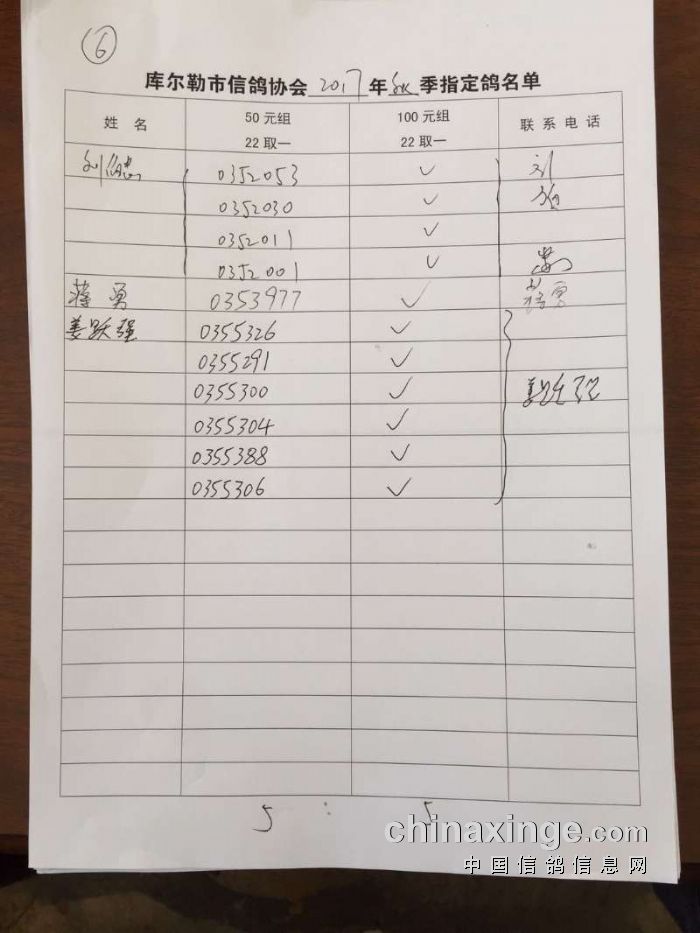 6
库尔勒市信鸽协会 2017 年 秋 季指定鸽名单
姓 名 50元组 22取一 100元组 22取一 联系电话
刘 0352053 ✓ 刘
0352030 ✓
0352011 ✓
0352001 ✓
蒋勇 0353977 ✓ 蒋勇
姜跃强 0355326 ✓
0355291 ✓
0355300 ✓ 姜跃强
0355304 ✓
0355388 ✓
0355306 ✓
5 : 5
chinaxinge.com
中国信鸽信息网